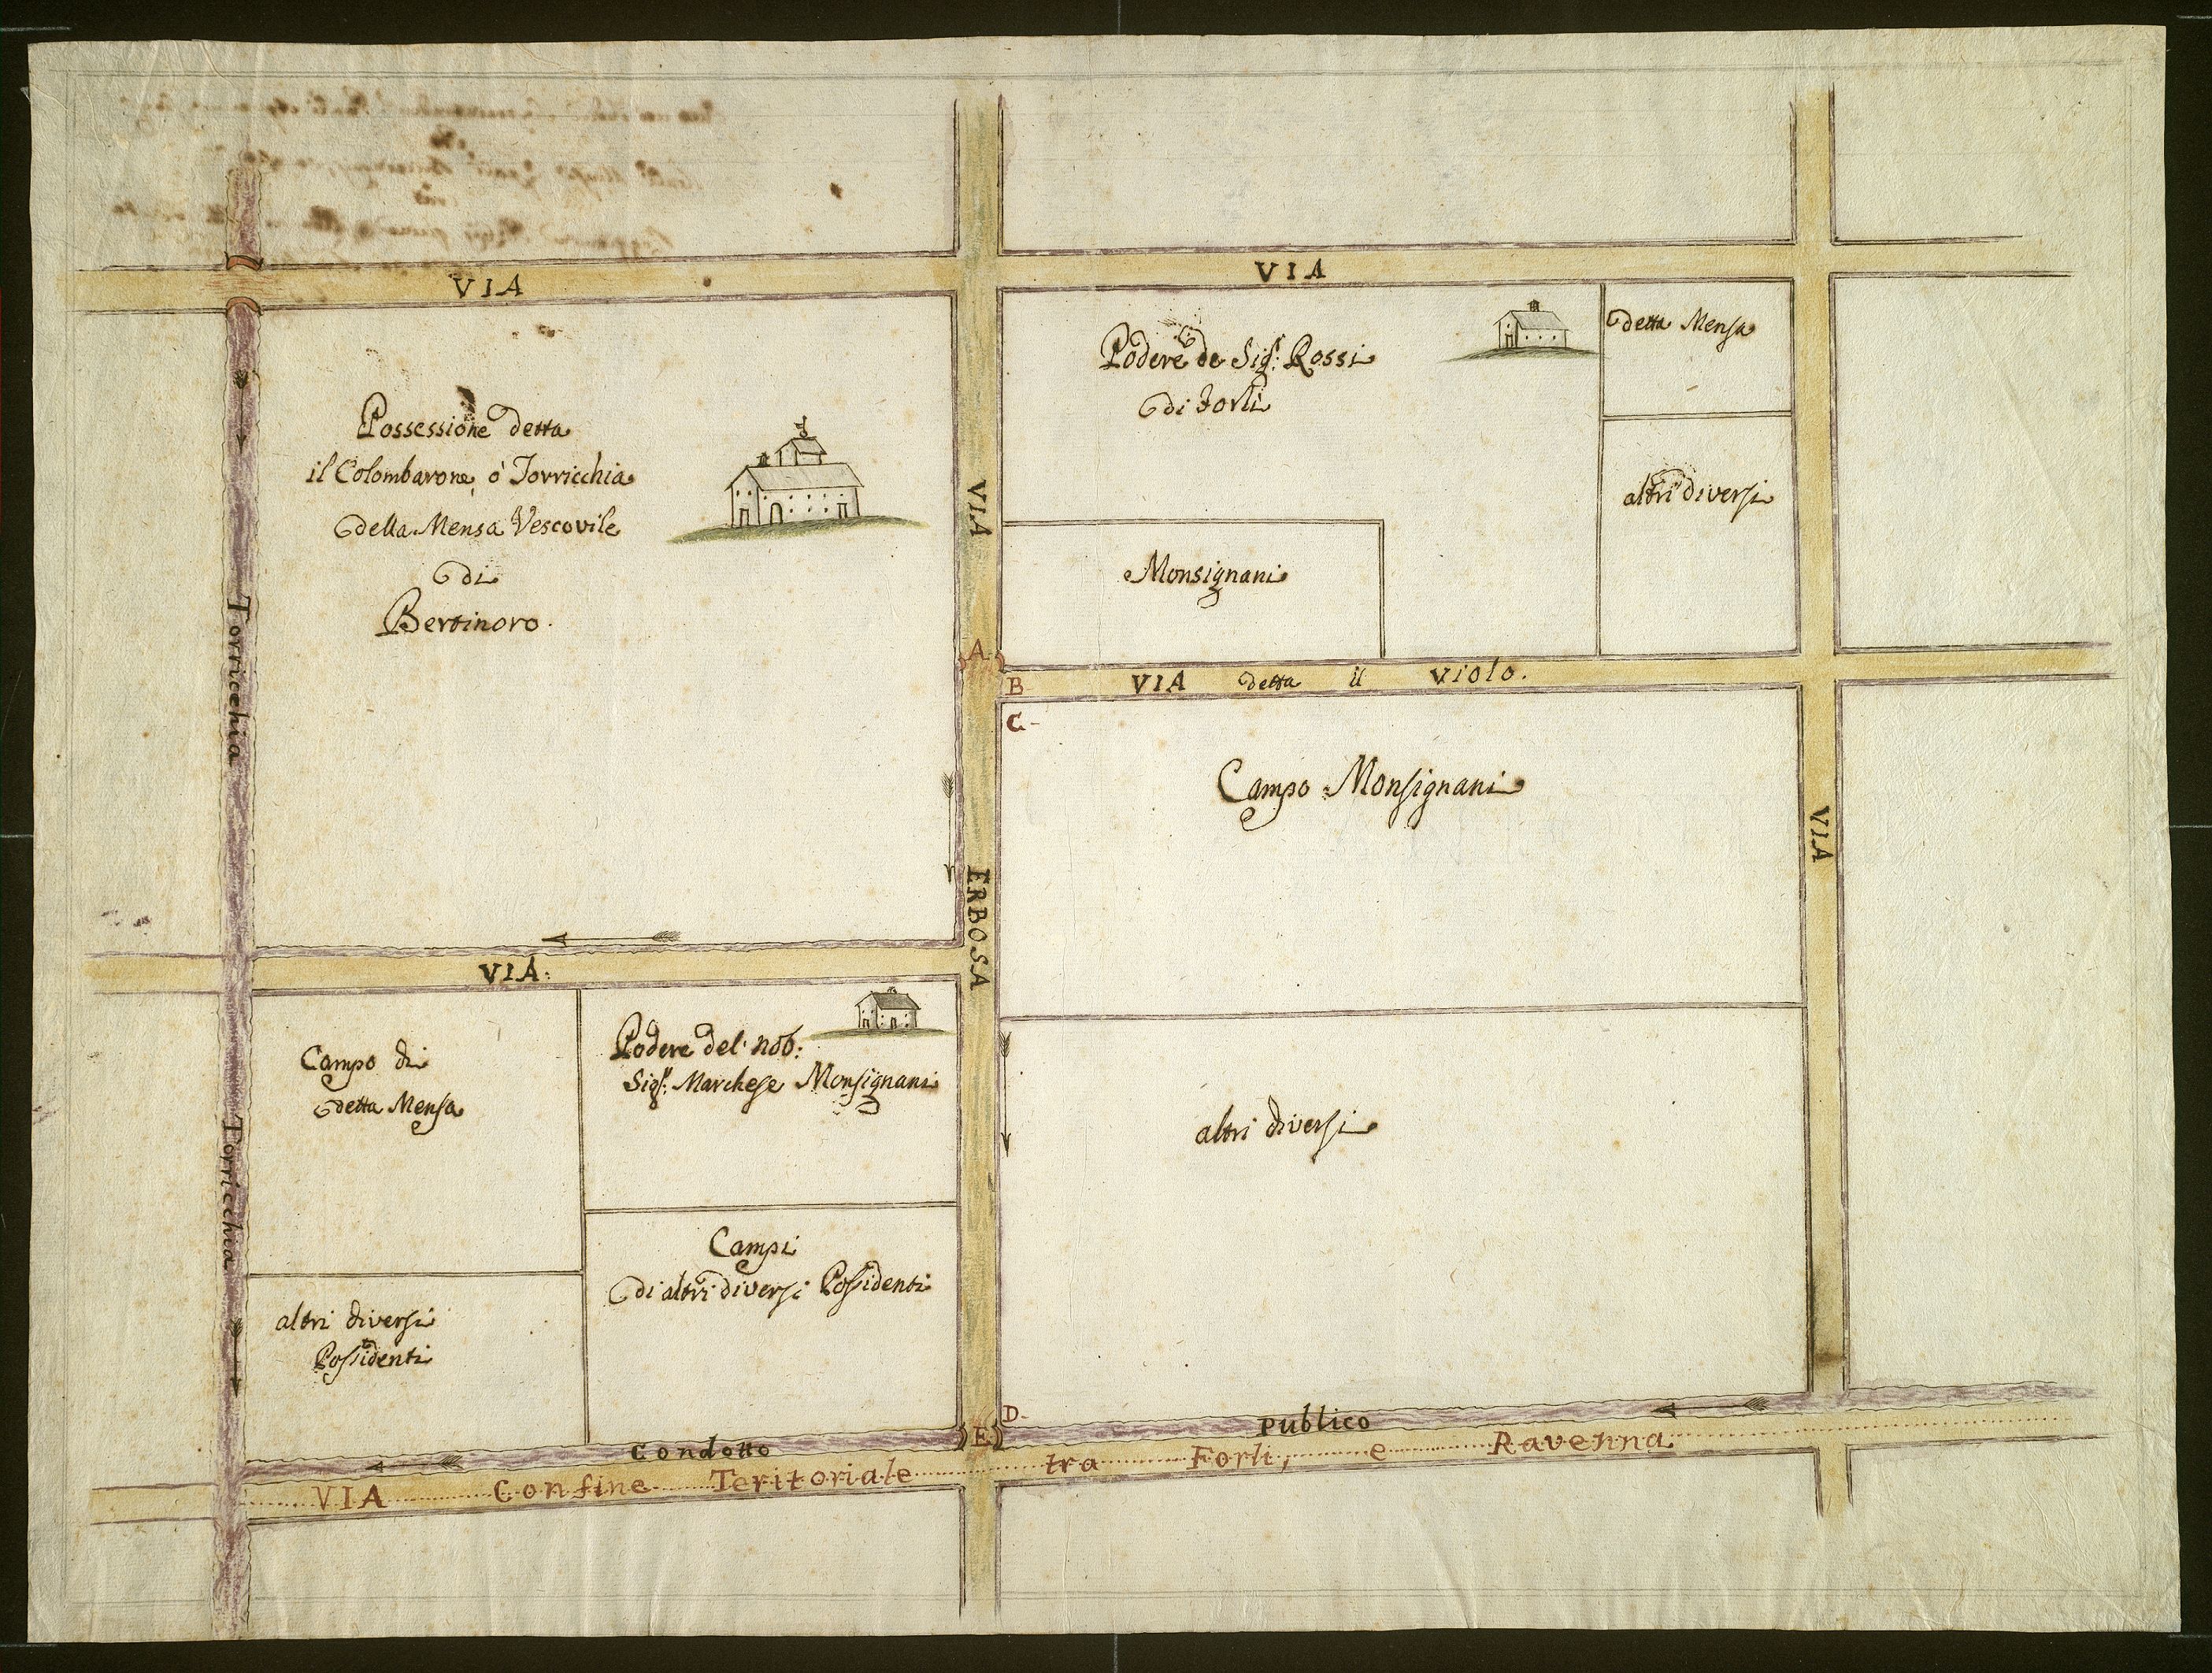 VIA
VIA
Possessione detta
il Colombarone, ò Torricchia
della Mensa Vescovile
di
Bertinoro.
Podere de Sigr: Rossi
di Forlì
detta Mensa
altri diversi
Monsignani
VIA
ERBOSA
A
B
C
VIA detta il Violo.
Torricchia
Campo Monsignani
VIA
VIA:
Campo di
detta Mensa
Podere del nob:
Sigr: Marchese Monsignani
Campi
di altri diversi Possidenti
altri diversi
Possidenti
Torricchia
altri diversi
D
E
Condotto publico
VIA Confine Teritoriale tra Forli, e Ravenna